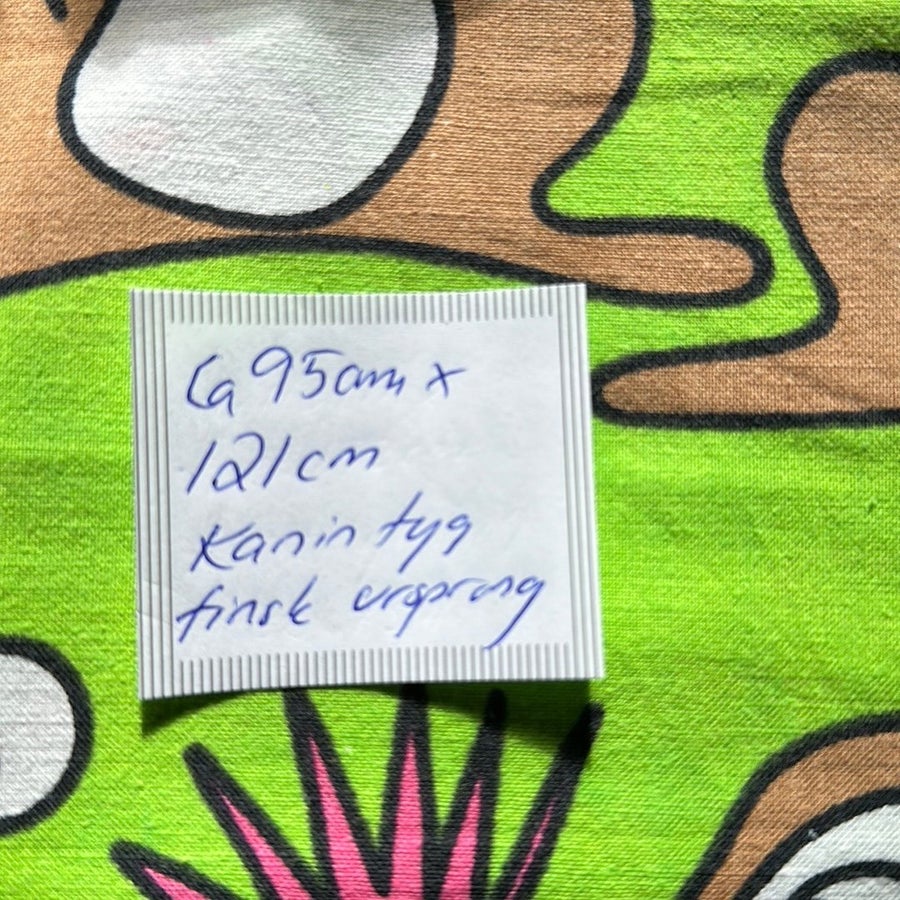 Ca 95cm x
121cm
Kanin tyg
finsk ursprung